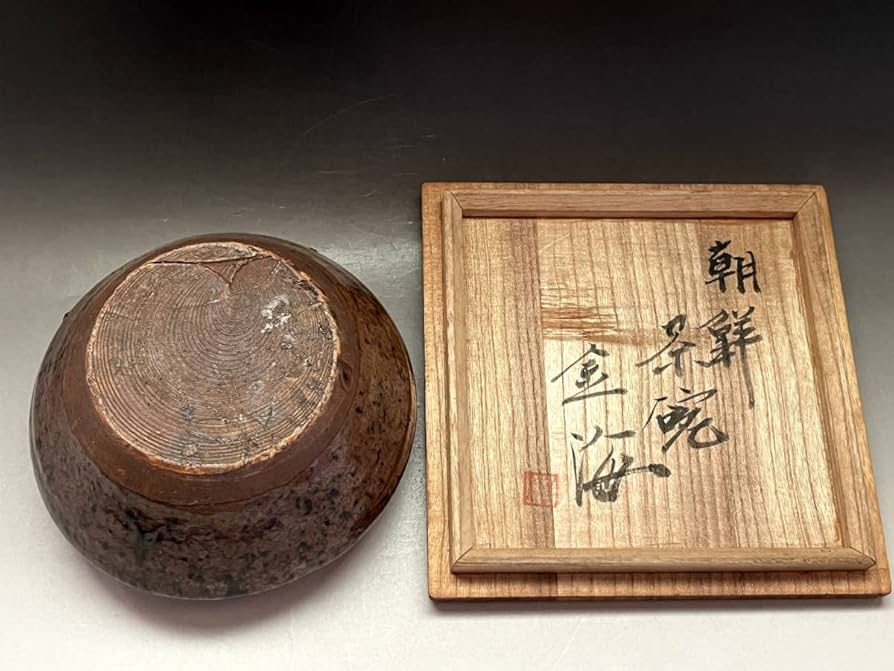 朝鮮
茶碗
金海